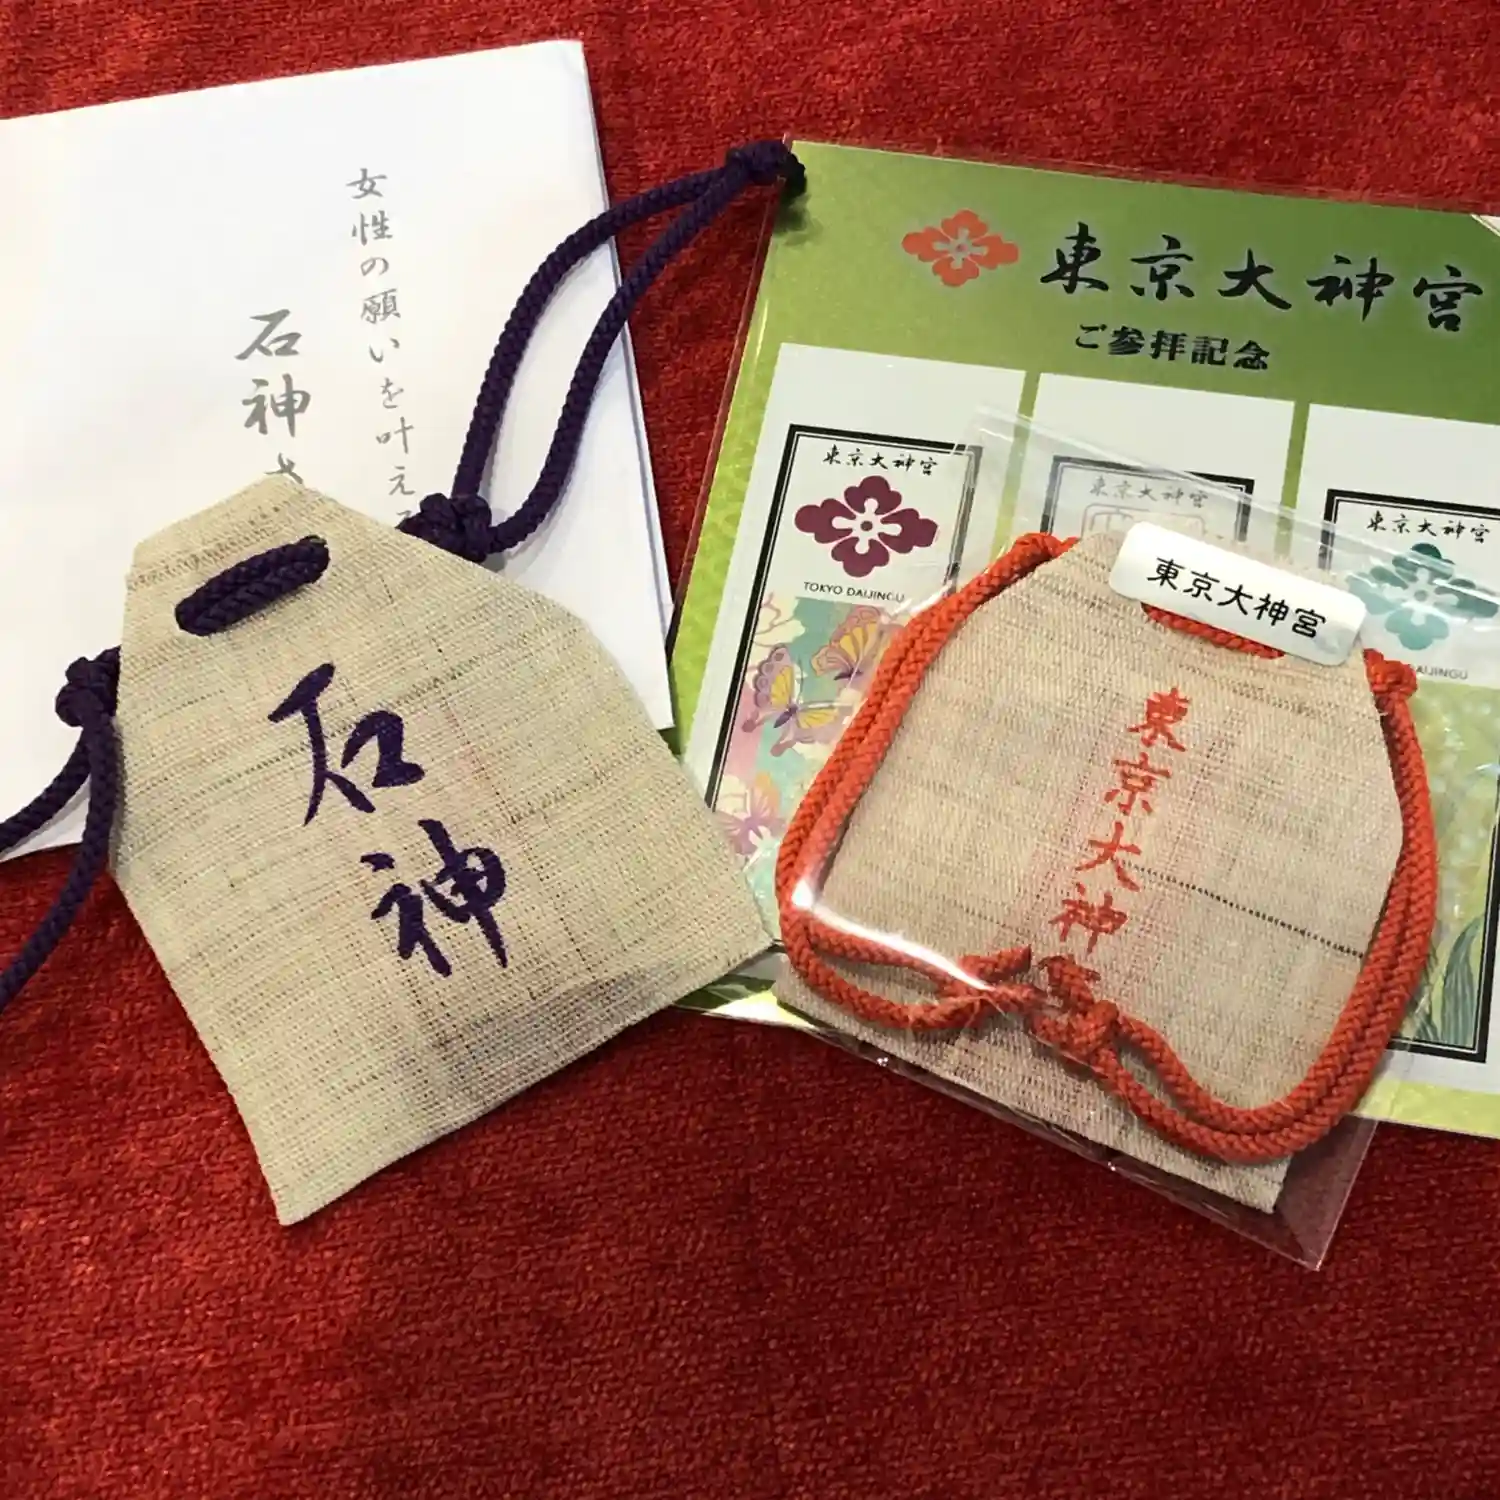 女性の願いを叶え
石神さ
石神
東京大神宮
ご参拝記念
東京大神宮
TOKYO DAIJINGU
東京大神宮
東京大神宮
AIJINGU
東京大神宮
東京大神宮